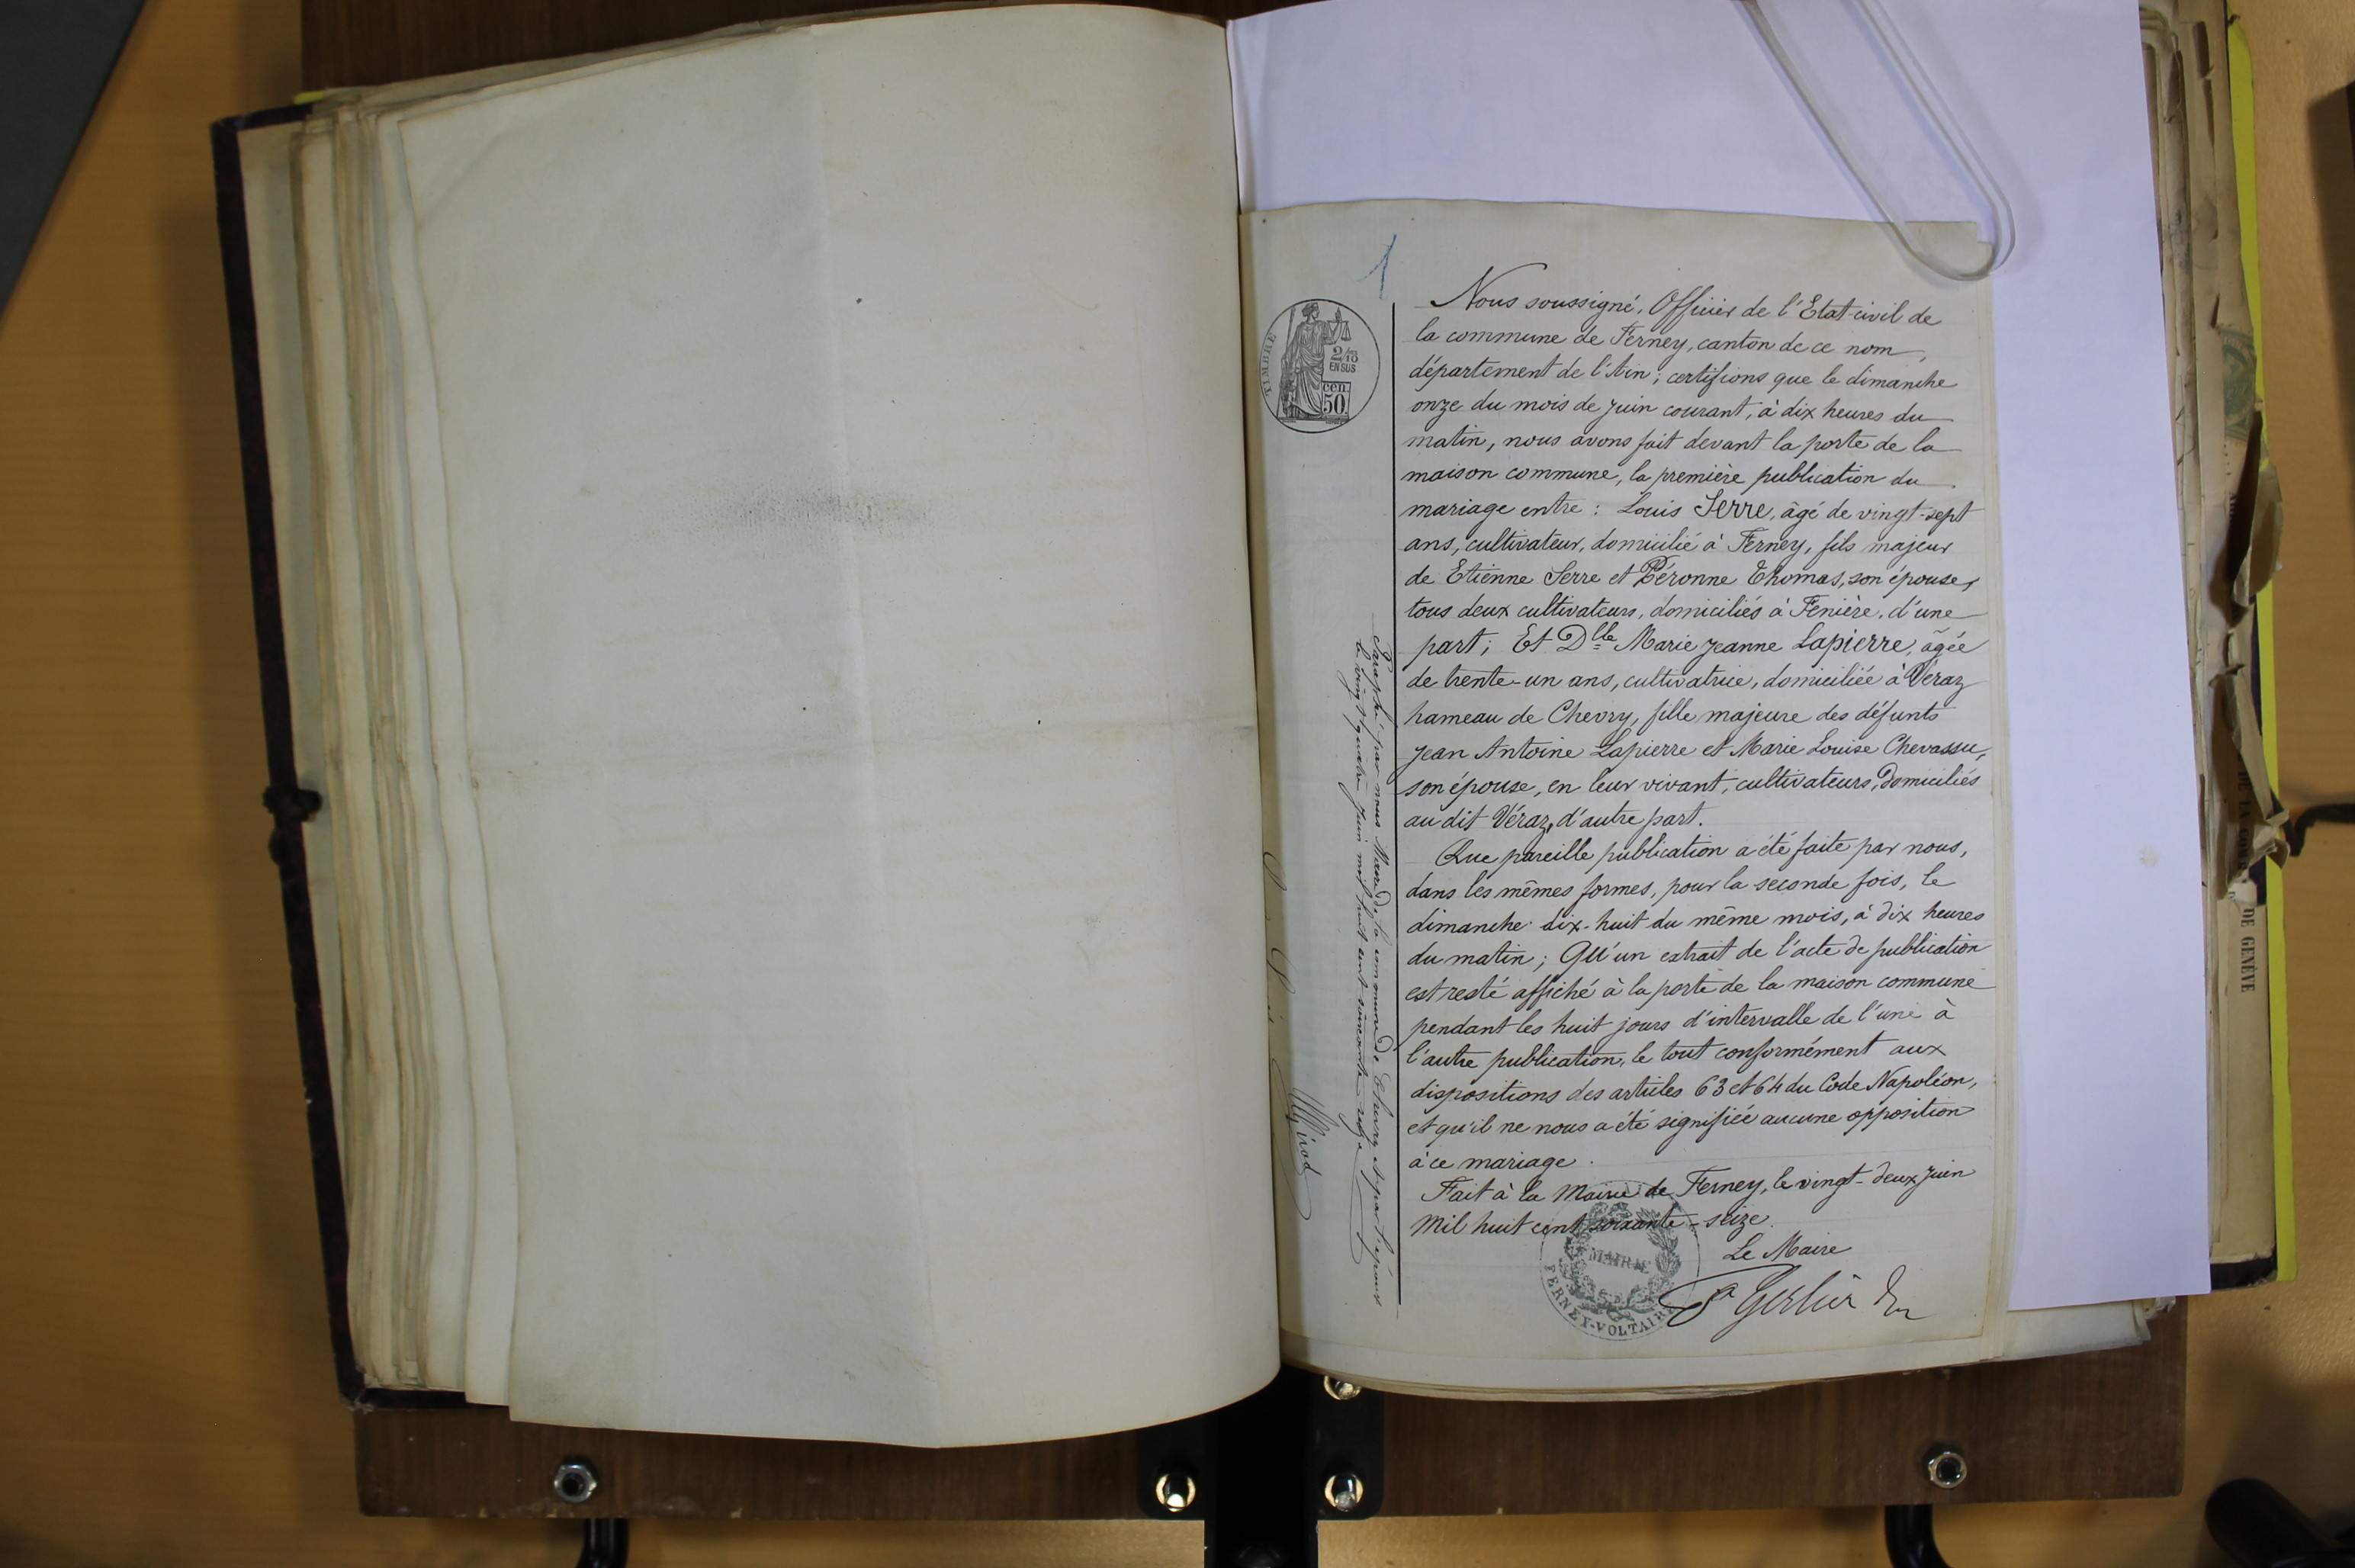 1
TIMBRE
2/10
EN SUS
cen.
50
Nous soussigné, Officier de l'Etat-civil de
la commune de Ferney, canton de ce nom,
département de l'Ain ; certifions que le dimanche
onze du mois de juin courant, à dix heures du
matin, nous avons fait devant la porte de la
maison commune, la première publication du
mariage entre : Louis Serre, âgé de vingt-sept
ans, cultivateur, domicilié à Ferney, fils majeur
de Etienne Serre et Péronne Thomas, son épouse,
tous deux cultivateurs, domiciliés à Fenière, d'une
part ; Et Dlle Marie Jeanne Lapierre, âgée
de trente-un ans, cultivatrice, domiciliée à Véraz
hameau de Chevry, fille majeure des défunts
Jean Antoine Lapierre et Marie Louise Chevassu,
son épouse, en leur vivant, cultivateurs, domiciliés
au dit Véraz, d'autre part.
Que pareille publication a été faite par nous,
dans les mêmes formes, pour la seconde fois, le
dimanche dix-huit du même mois, à dix heures
du matin ; Qu'un extrait de l'acte de publication
est resté affiché à la porte de la maison commune
pendant les huit jours d'intervalle de l'une à
l'autre publication, le tout conformément aux
dispositions des articles 63 et 64 du Code Napoléon,
et qu'il ne nous a été signifiée aucune opposition
à ce mariage.
Fait à la Mairie de Ferney, le vingt-deux juin
mil huit cent soixante-seize.
Le Maire
MAIRIE
FERNEY-VOLTAIRE
Paraphé par nous Maire de la commune de Chevry et par l'époux
le vingt quatre juin mil huit cent soixante seize
DE GENÈVE